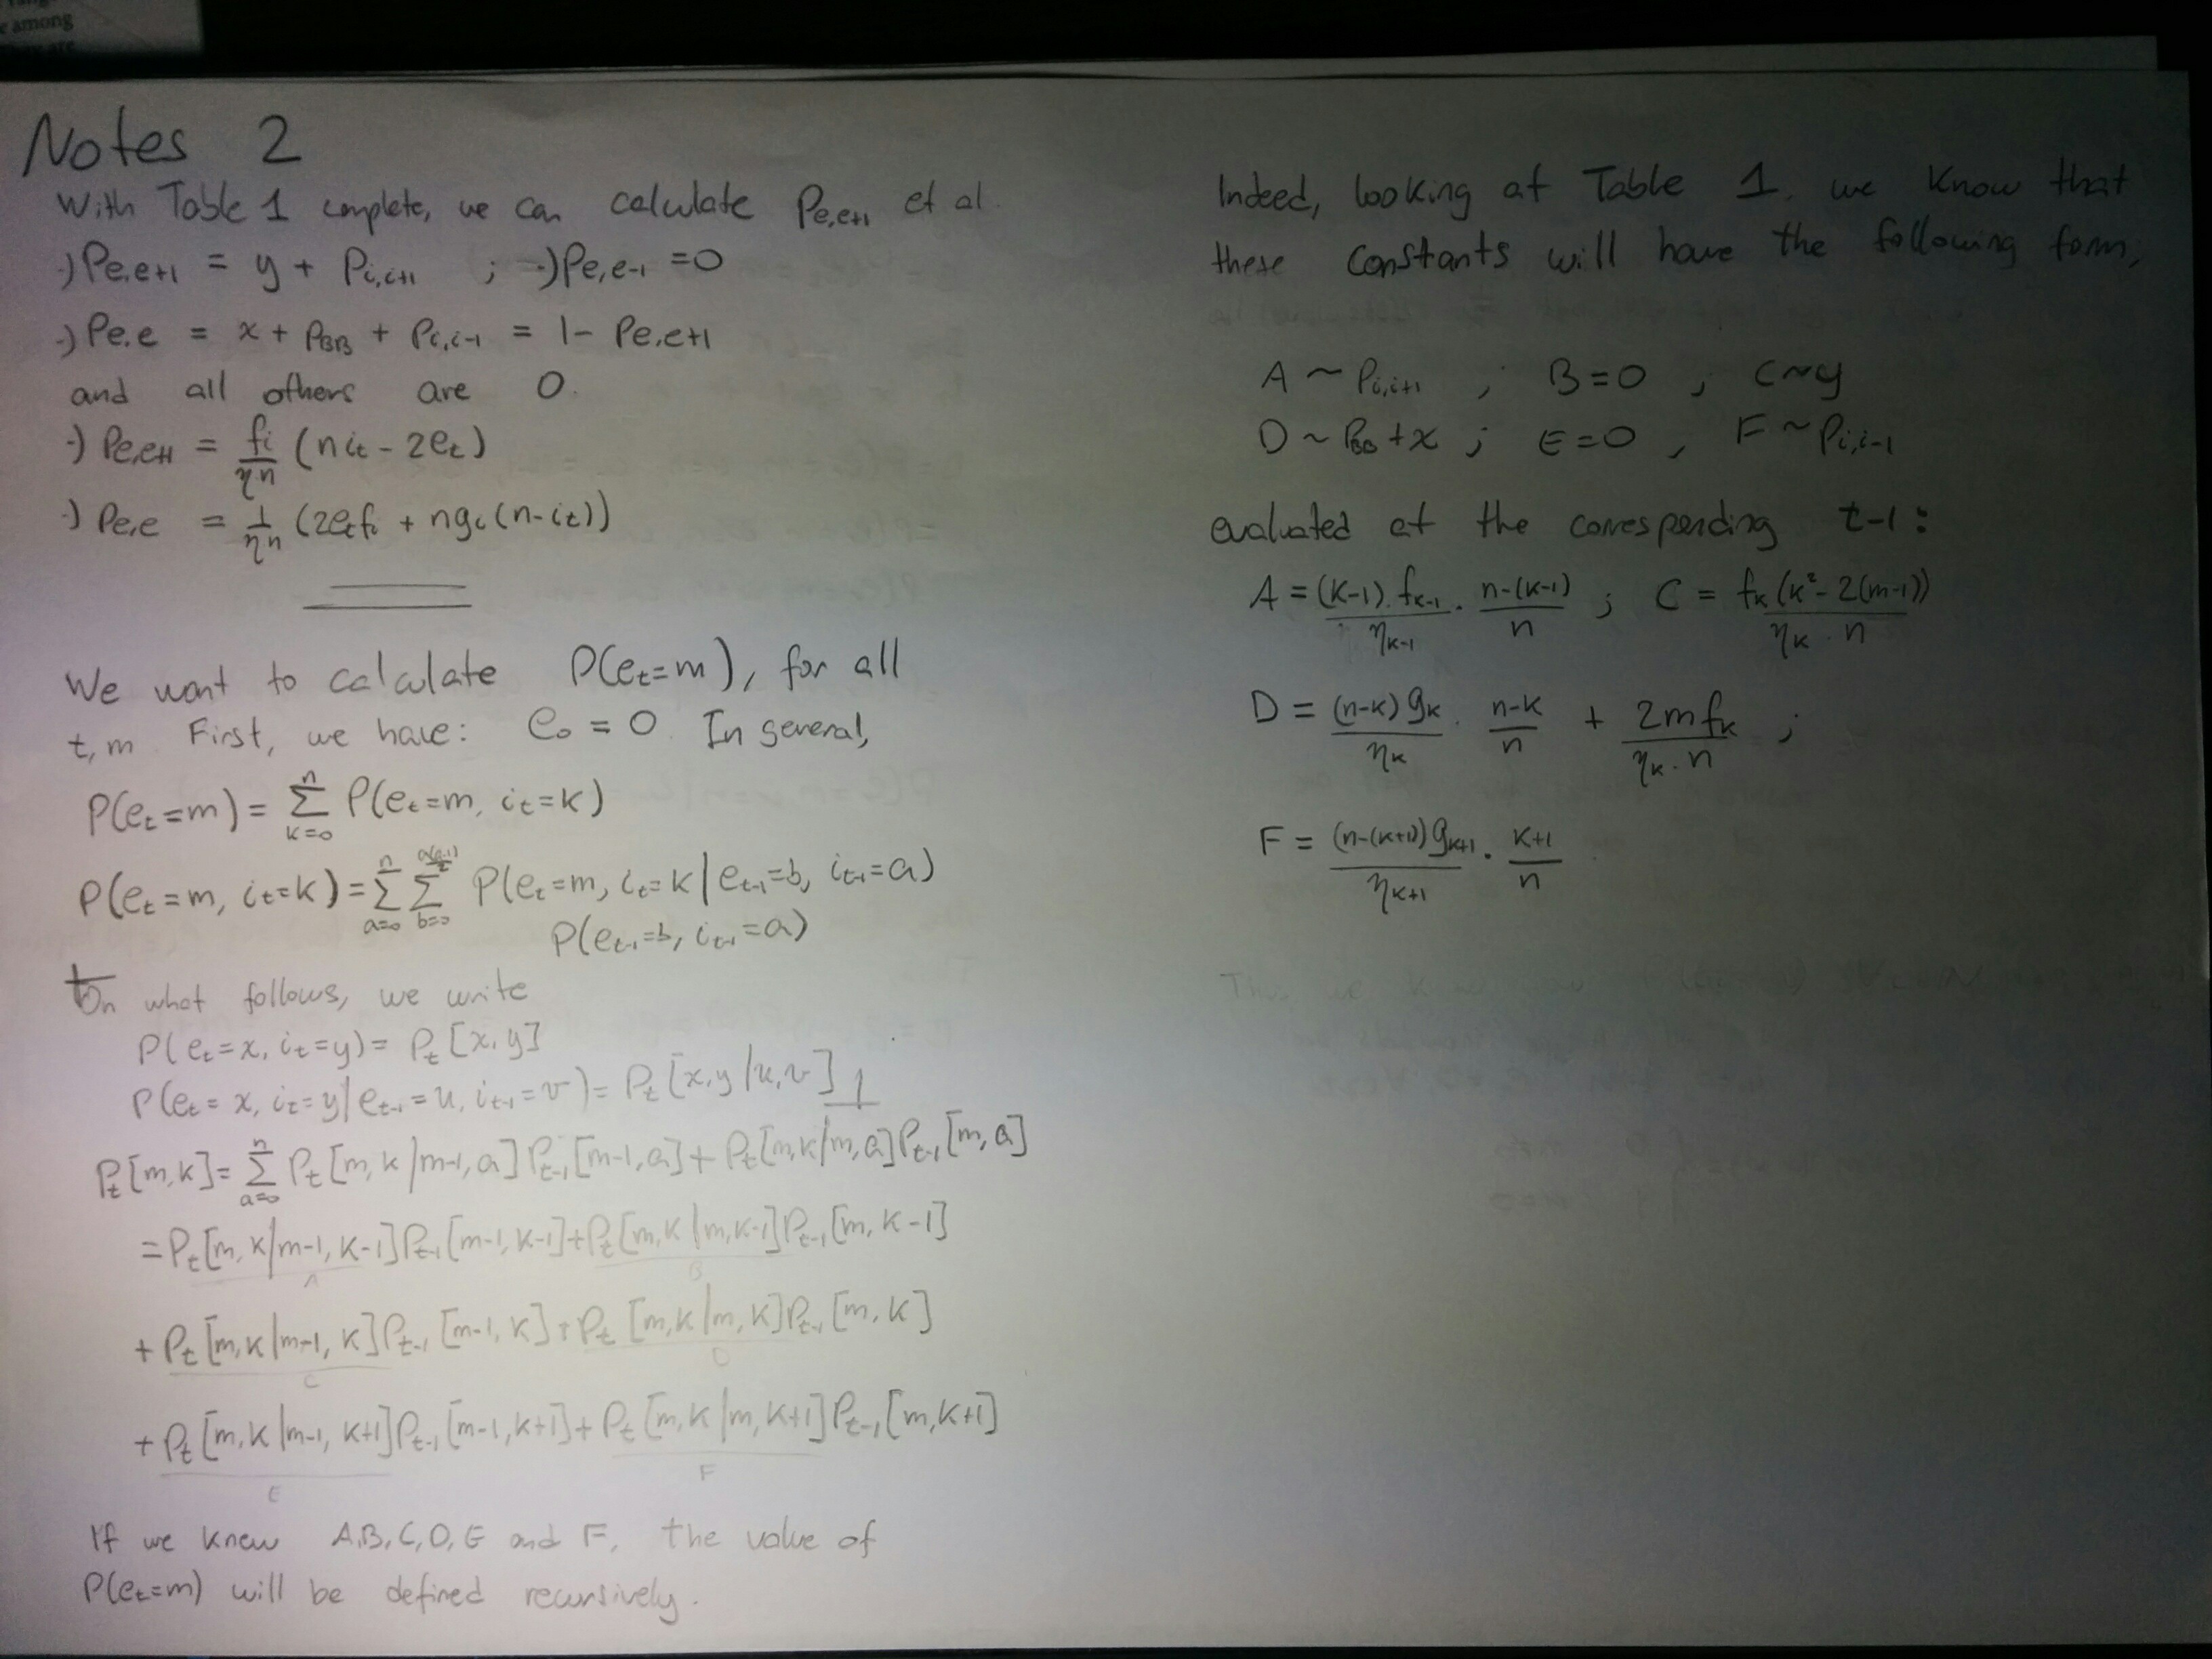 e among
Notes 2
With Table 1 complete, we can calculate Pe,e+1 et al.
·) Pe,e+1 = y + Pi,i+1 ; ·) Pe,e-1 = 0
·) Pe,e = x + PBB + Pi,i-1 = 1 - Pe,e+1
and all others are 0.
·) Pe,e+1 = fi/(η·n) (n it - 2et)
·) Pe,e = 1/(η n) (2et fi + n gi (n-it))
We want to calculate P(et=m), for all
t, m. First, we have: e0 = 0. In general,
P(et=m) = Σ_{k=0}^{n} P(et=m, it=k)
P(et=m, it=k) = Σ_{a=0}^{n} Σ_{b=0}^{a(a-1)/2} P(et=m, it=k | et-1=b, it-1=a)
P(et-1=b, it-1=a)
On what follows, we write
P(et=x, it=y) = Pt[x,y]
P(et=x, it=y | et-1=u, it-1=v) = Pt[x,y|u,v]
Pt[m,k] = Σ_{a=0}^{n} Pt[m,k|m-1,a]Pt-1[m-1,a] + Pt[m,k|m,a]Pt-1[m,a]
= Pt[m,k|m-1,k-1]Pt-1[m-1,k-1] + Pt[m,k|m,k-1]Pt-1[m,k-1]
A B
+ Pt[m,k|m-1,k]Pt-1[m-1,k] + Pt[m,k|m,k]Pt-1[m,k]
C D
+ Pt[m,k|m-1,k+1]Pt-1[m-1,k+1] + Pt[m,k|m,k+1]Pt-1[m,k+1]
E F
If we knew A,B,C,D,E and F, the value of
P(et=m) will be defined recursively.
Indeed, looking at Table 1, we know that
these constants will have the following form,
A ~ Pi,i+1 ; B=0 , C~y
D ~ PBB + x ; E=0 , F ~ Pi,i-1
evaluated at the corresponding t-1:
A = (k-1)·fk-1/ηk-1 · (n-(k-1))/n ; C = fk(k²-2(m-1))/(ηk·n)
D = (n-k)gk/ηk · (n-k)/n + 2mfk/(ηk·n) ;
F = (n-(k+1))gk+1/ηk+1 · (k+1)/n